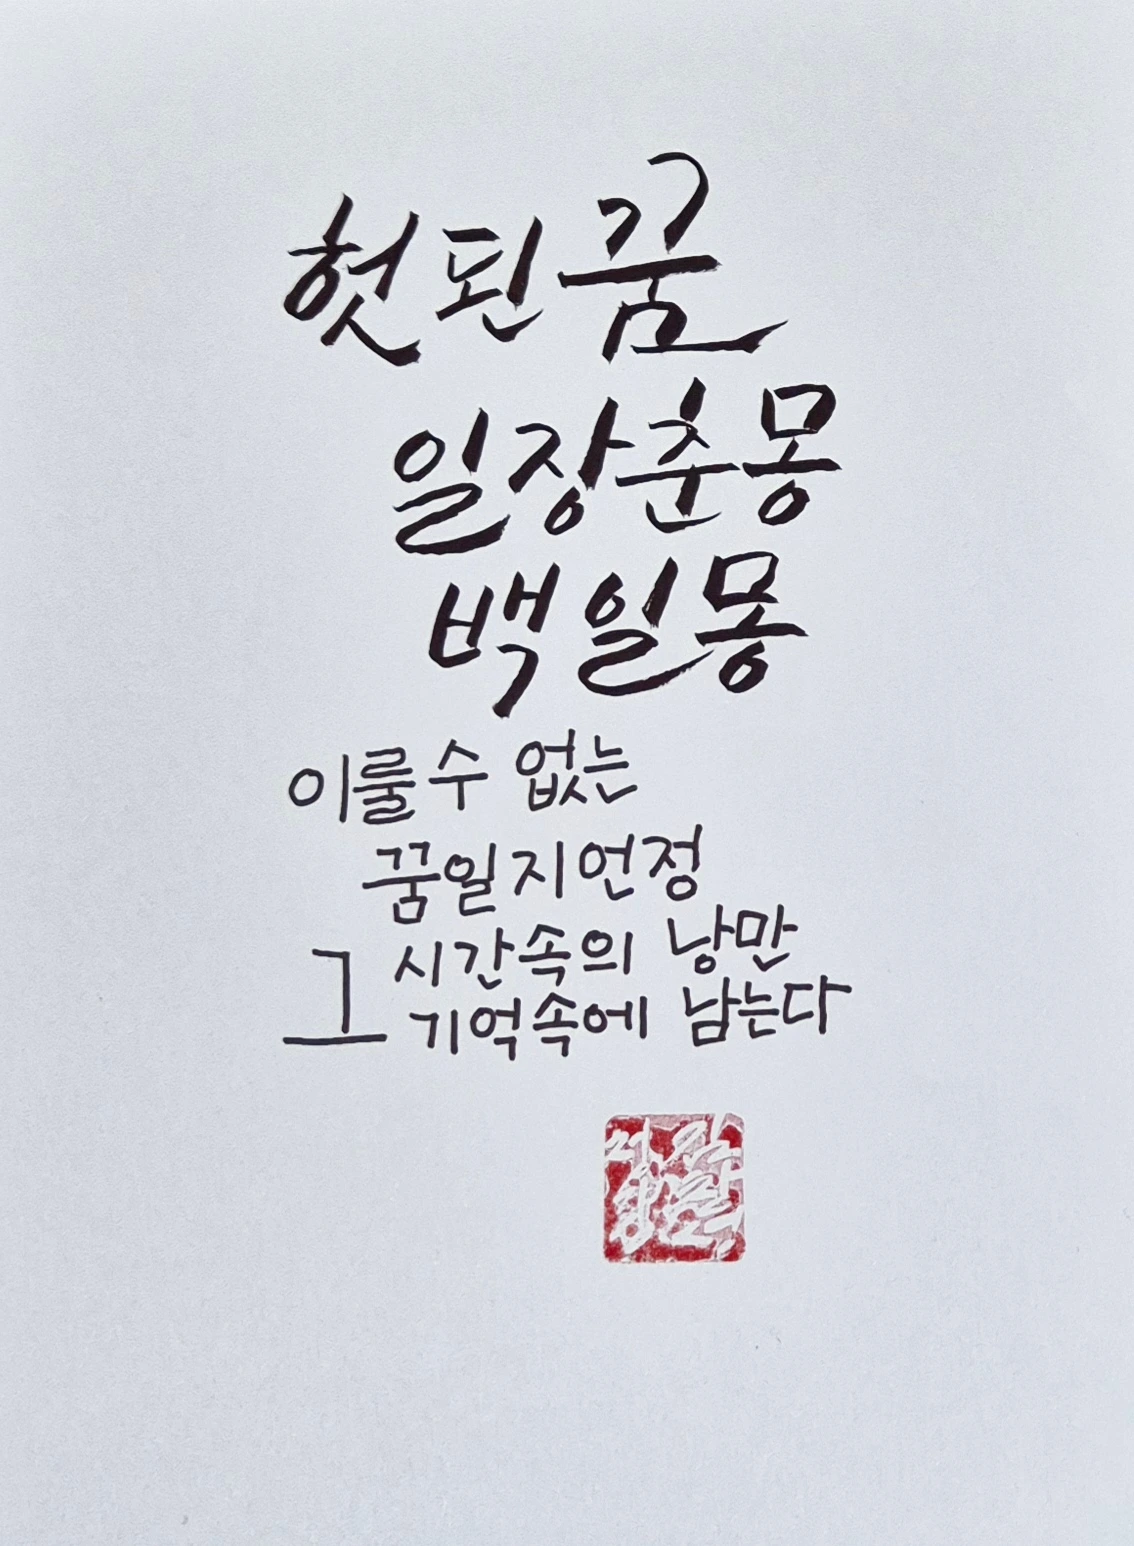 헛된 꿈
일장춘몽
백일몽
이룰 수 없는
꿈일지언정
그 시간속의 낭만
기억속에 남는다